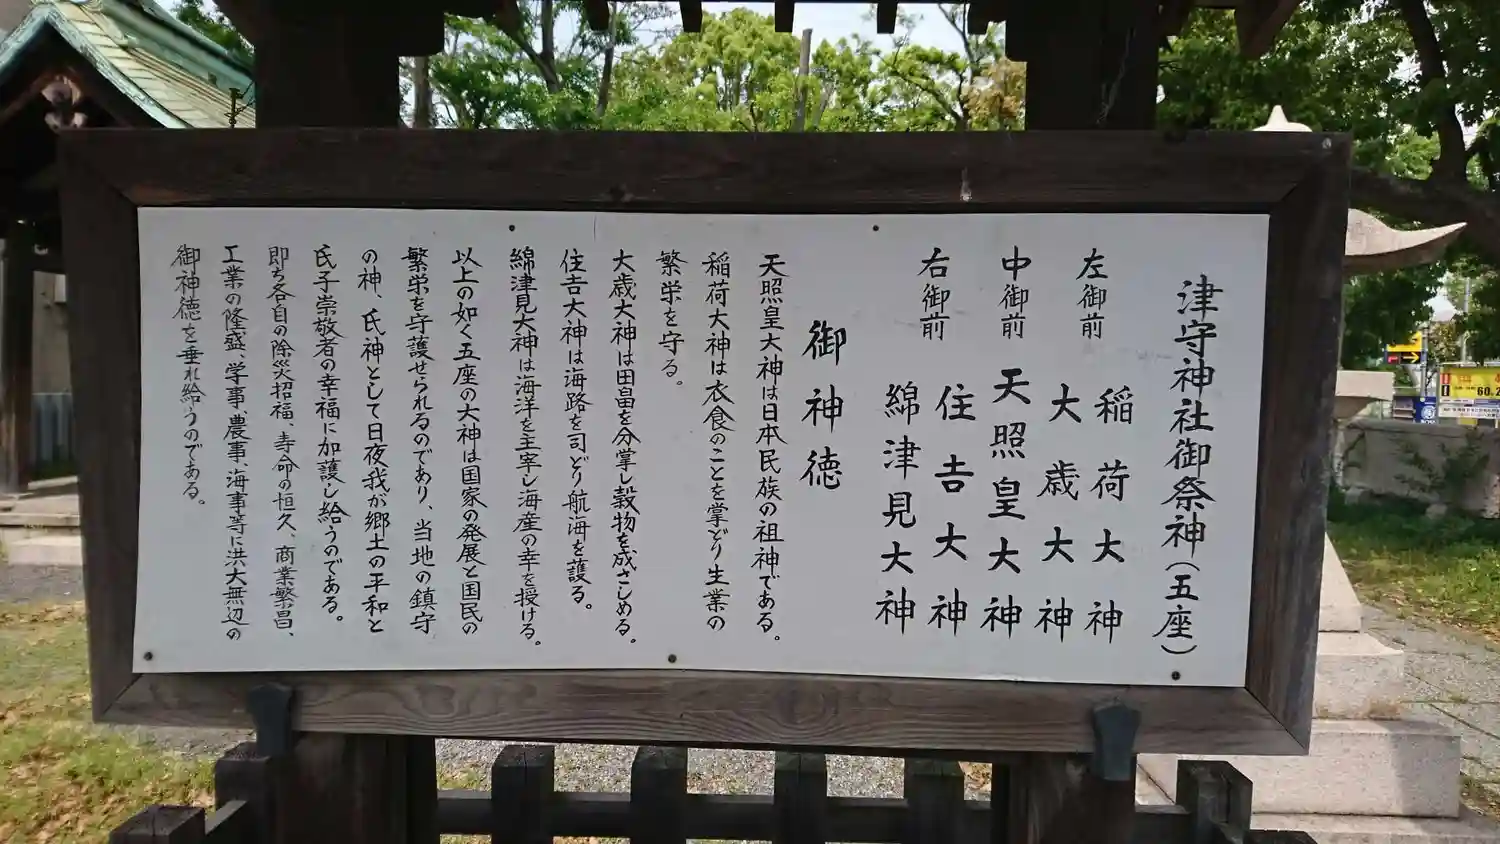 津守神社御祭神（五座）
左御前
稲荷大神
大歳大神
中御前
天照皇大神
右御前
住吉大神
綿津見大神
御神徳
天照皇大神は日本民族の祖神である。
稲荷大神は衣食のことを掌どり生業の
繁栄を守る。
大歳大神は田畠を分掌し穀物を成さしめる。
住吉大神は海路を司どり航海を護る。
綿津見大神は海洋を主宰し海産の幸を授ける。
以上の如く五座の大神は国家の発展と国民の
繁栄を守護せられるのであり、当地の鎮守
の神、氏神として日夜我が郷土の平和と
氏子崇敬者の幸福に加護し給うのである。
即ち各自の除災招福、寿命の恒久、商業繁昌、
工業の隆盛、学事、農事、海事等に洪大無辺の
御神徳を垂れ給うのである。